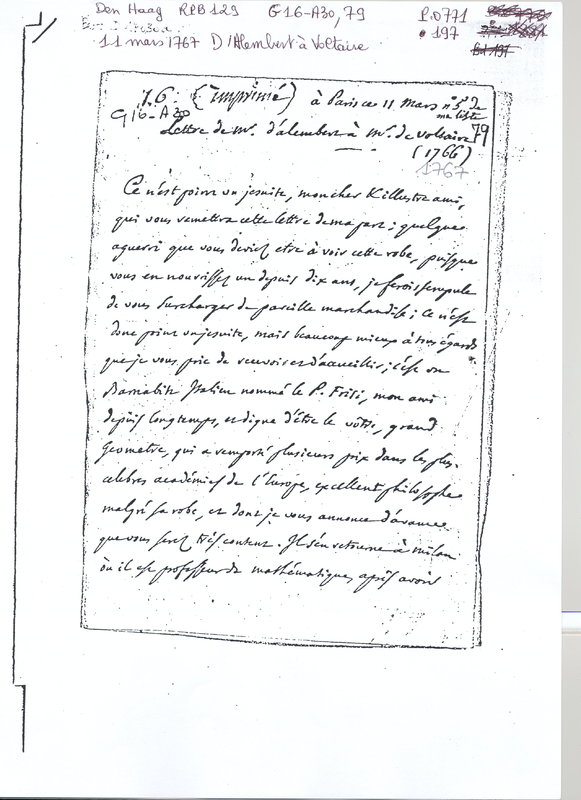 Den Haag RPB 129 G16-A30, 79 P.0771
• 197
11 mars 1767 D'Alembert à Voltaire
76. (imprimé) à Paris ce 11 Mars n°5 de
ma liste
G16-A30
Lettre de mr. d'alembert à mr. de voltaire 79
(1766)
1767
Ce n'est point un jesuite, mon cher & illustre ami,
qui vous remettra cette lettre de ma part; quelque
aguerri que vous deviez etre à voir cette robe, puisque
vous en nourrissez un depuis dix ans, je ferois scrupule
de vous surcharger de pareille marchandise; ce n'est
donc point un jesuite, mais beaucoup mieux à tous égards
que je vous prie de recevoir et d'accueillir; c'est un
Barnabite Italien nommé le P. Frisi, mon ami
depuis longtemps, et digne d'être le vôtre, grand
Geometre, qui a remporté plusieurs prix dans les plus
celebres académies de l'Europe, excellent philosophe
malgré sa robe, et dont je vous annonce d'avance
que vous serez très content. Il s'en retourne à milan
où il est professeur de mathématiques, après avoir